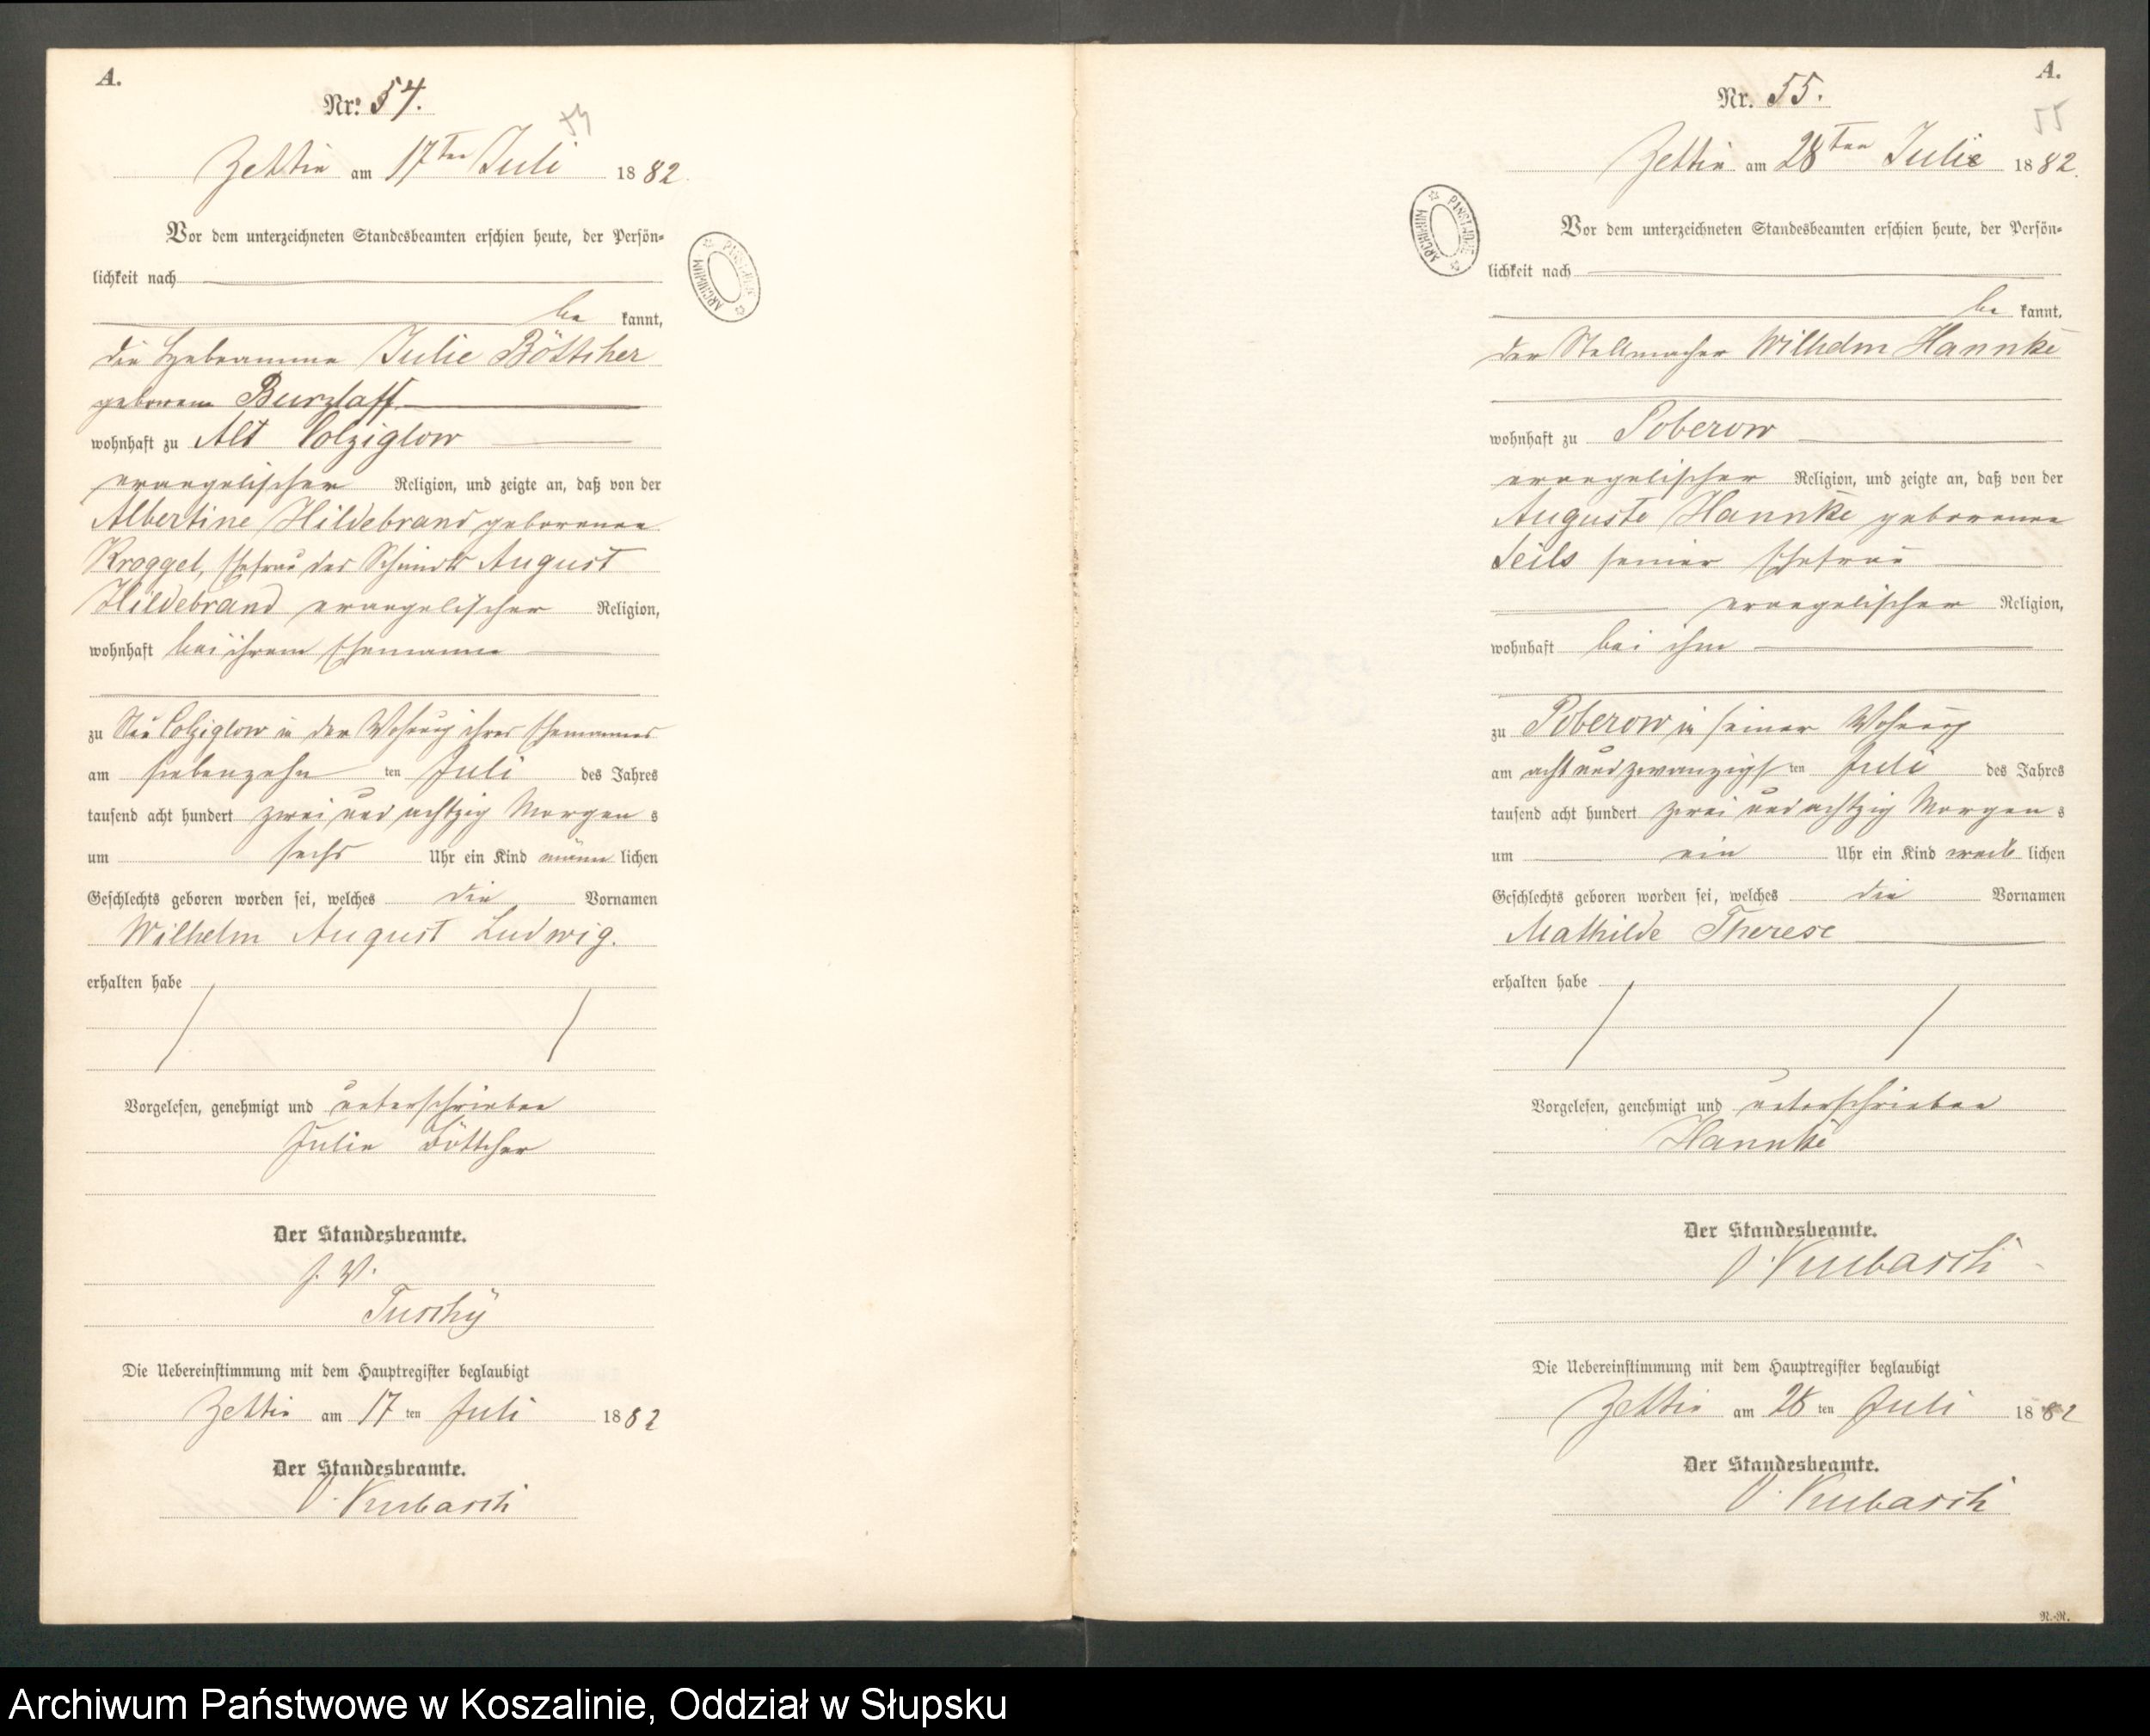 A.
Nr. 54.
54
Zettin am 17ten Juli 1882.
Vor dem unterzeichneten Standesbeamten erschien heute, der Persön-
lichkeit nach
be kannt,
die Hebeamme Julie Böttcher
geborene Burzlaff
wohnhaft zu Alt Colziglow
evangelischer Religion, und zeigte an, daß von der
Albertine Hildebrand geborenen
Kroggel, Ehefrau des Schmieds August
Hildebrand evangelischer Religion,
wohnhaft bei ihrem Ehemanne
zu Neu Colziglow in der Wohnung ihres Ehemannes
am siebenzehn ten Juli des Jahres
tausend acht hundert zwei und achtzig Morgen s
um sechs Uhr ein Kind männ lichen
Geschlechts geboren worden sei, welches die Vornamen
Wilhelm August Ludwig.
erhalten habe
Vorgelesen, genehmigt und unterschrieben
Julie Böttcher
Der Standesbeamte.
J. V.
Tuschy
Die Uebereinstimmung mit dem Hauptregister beglaubigt
Zettin am 17 ten Juli 1882
Der Standesbeamte.
ARCHIWUM PAŃSTWOWE
A.
Nr. 55.
55
Zettin am 28ten Juli 1882.
Vor dem unterzeichneten Standesbeamten erschien heute, der Persön-
lichkeit nach
be kannt,
der Stellmacher Wilhelm Hannke
wohnhaft zu Poberow
evangelischer Religion, und zeigte an, daß von der
Auguste Hannke geborenen
Seils seiner Ehefrau
evangelischer Religion,
wohnhaft bei ihm
zu Poberow in seiner Wohnung
am acht und zwanzigs ten Juli des Jahres
tausend acht hundert zwei und achtzig Morgen s
um ein Uhr ein Kind weib lichen
Geschlechts geboren worden sei, welches die Vornamen
Mathilde Therese
erhalten habe
Vorgelesen, genehmigt und unterschrieben
Hannke
Der Standesbeamte.
Die Uebereinstimmung mit dem Hauptregister beglaubigt
Zettin am 28 ten Juli 1882
Der Standesbeamte.
R.-R.
Archiwum Państwowe w Koszalinie, Oddział w Słupsku